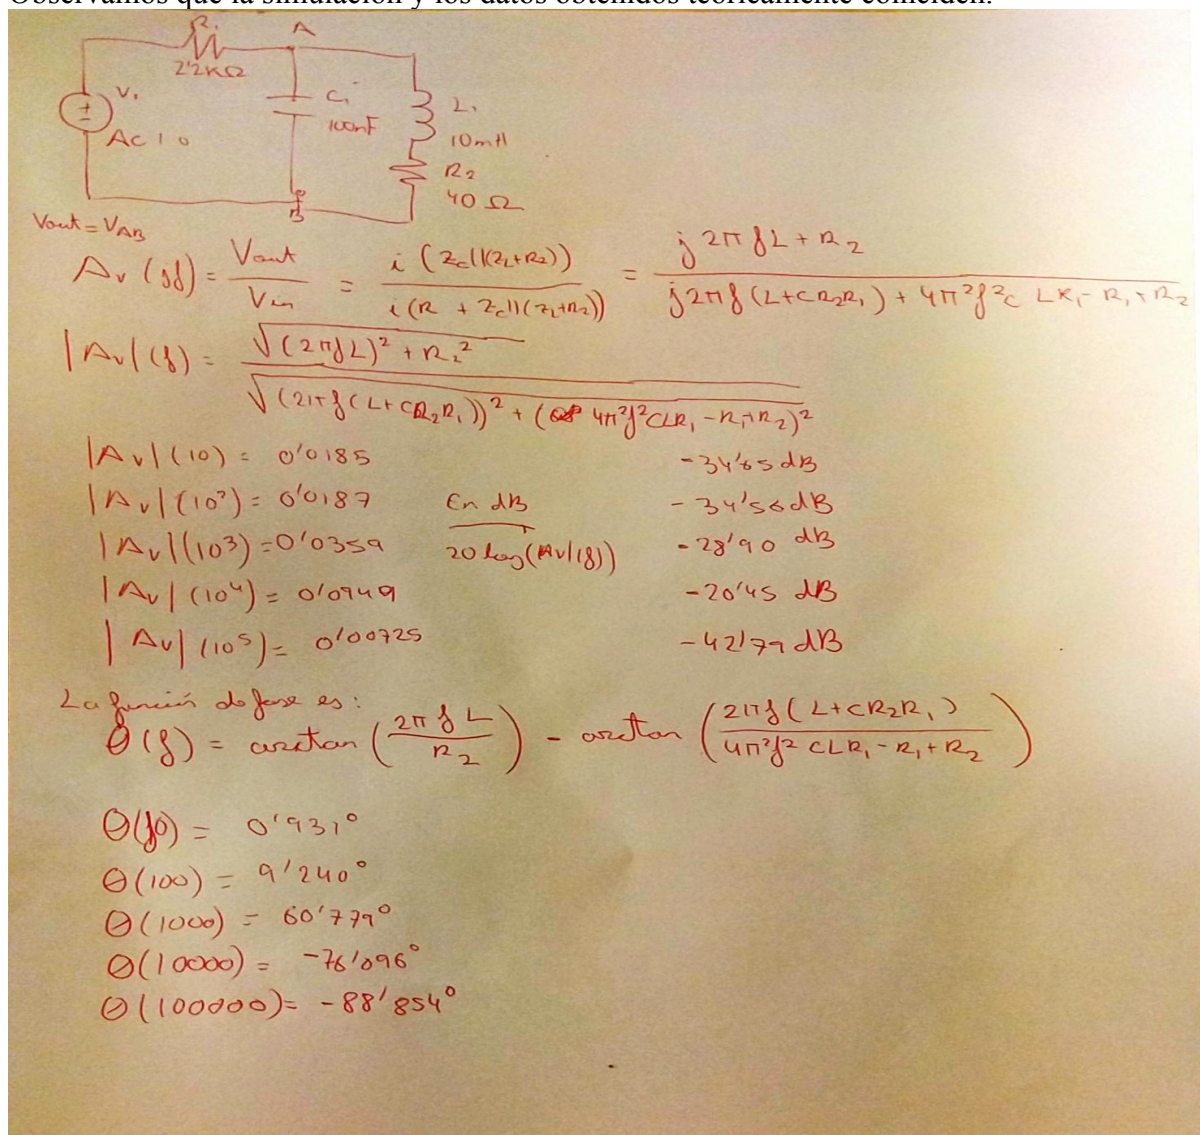 Observamos que la simulación y los datos obtenidos teóricamente coinciden.
R₁ A
2'2KΩ
V₁ C₁ L₁
AC 1 0 100nF 10mH
R₂
40 Ω
B
Vout = VAB
Av (jf) = Vout / Vin = i (Zc||(ZL+R2)) / i (R + Zc||(ZL+R2)) = j 2π f L + R2 / j2πf (L+CR2R1) + 4π²f²C LR1 - R1 + R2
|Av| (f) = √(2πfL)² + R2² / √(2πf (L+CR2R1))² + (4π²f²CLR1 - R1+R2)²
|Av| (10) = 0'0185 -34'65 dB
|Av| (10²) = 0'0187 En dB -34'56 dB
|Av| (10³) = 0'0359 20 log(|Av|(f)) -28'90 dB
|Av| (10⁴) = 0'0949 -20'45 dB
|Av| (10⁵) = 0'00725 -42'79 dB
La función de fase es:
Θ(f) = arctan (2πf L / R2) - arctan (2πf (L+CR2R1) / 4π²f² CLR1 - R1 + R2)
Θ(10) = 0'931°
Θ(100) = 9'240°
Θ(1000) = 60'779°
Θ(10000) = -76'096°
Θ(100000) = -88'854°